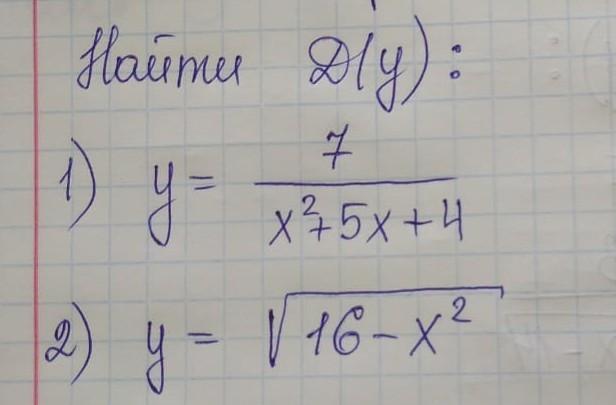 Найти D(y):
1) y = 7 / (x² + 5x + 4)
2) y = √(16 - x²)